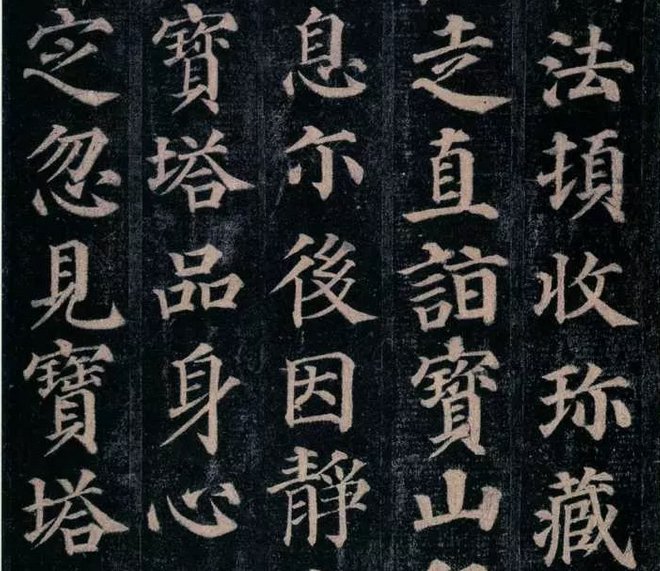 法頓收珎藏
走直詣寶山
息尒後因靜
寶塔品身心
定忽見寶塔